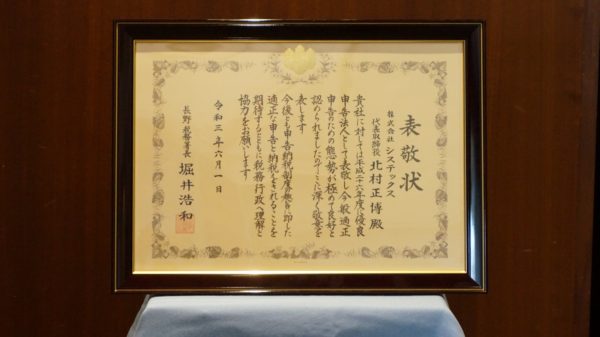 表敬状
株式会社 システックス
代表取締役 北村正博殿
貴社に対しては平成二十六年度に優良
申告法人として表敬し今般適正
申告のための態勢が極めて良好と
認められましたのでここに深く敬意を
表します
今後とも申告納税制度の趣旨に即した
適正な申告と納税をされることを
期待するとともに税務行政へ理解と
協力をお願いします
令和三年六月一日
長野税務署長 堀井浩和